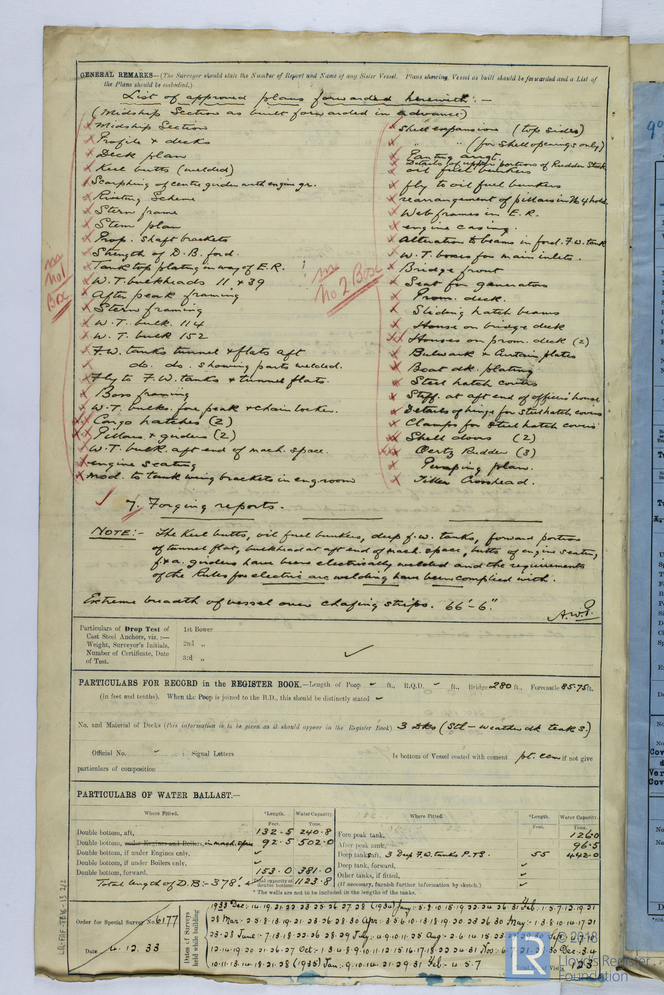 GENERAL REMARKS—(The Surveyor should state the Number of Report and Name of any Sister Vessel. Plans showing Vessel as built should be forwarded and a List of
the Plans should be embodied.)
List of approved plans forwarded herewith:—
(Midship Section as built forwarded in advance)
x Midship Section
x Profile & decks
x Deck plan
x Keel butts (welded)
x Scarphing of centre girder with engine gr.
x Riveting Scheme
x Stern frame
x Stem plan
x Prop. shaft brackets
x Strength of D.B. ford.
x Tank top plating in way of E.R.
x W.T. bulkheads 11 & 39
x After peak framing
x Stern framing
x W.T. bulk. 114
x W.T. bulk 152
x F.W. tanks tunnel & flats aft
do. do. showing parts welded.
x Fly to F.W. tanks & tunnel flats.
x Boss framing
x W.T. bulks. fore peak & chain locker.
xx Cargo hatches (2)
xx Pillars & girders (2)
x W.T. bulk. aft end of mach. space.
x engine seating
x mod. to tank wing brackets in eng room
no 1 Box
x Shell expansion (top sides)
x " " (for shell openings only)
x Details of upper portions of Rudder Stock
x oil fuel bunkers
x fly to oil fuel bunkers
x rearrangement of pillars in No 4 hold
x Web frames in E.R.
x engine casing.
x Alteration to beams in ford. F.W. tank
x W.T. boxes for main inlets.
x Bridge front
x Seat for generators
x Prom. deck.
x Sliding hatch beams
x House on bridge deck
xx Houses on prom. deck (2)
x Bulwark & Curtain plates
x Boat dk plating
x Steel hatch covers
x Stiff. at aft end of officers' house
x Details of hinge for steel hatch covers
x Clamps for steel hatch covers
xx Shell doors (2)
xxx Oertz Rudder (3)
x Pumping plan.
x Tiller Crosshead.
no 2 Box
7. Forging reports.
NOTE:- The keel butts, oil fuel bunkers, deep f.w. tanks, forward portion
of tunnel flat, bulkhead at aft end of mach. space, butts of engine seating,
f & a. girders have been electrically welded and the requirements
of the Rules for electric arc welding have been complied with.
Extreme breadth of vessel over chafing strips. 66'-6".
Particulars of Drop Test of
Cast Steel Anchors, viz.:—
Weight, Surveyor's Initials,
Number of Certificate, Date
of Test.
1st Bower
2nd "
3rd "
PARTICULARS FOR RECORD in the REGISTER BOOK.—Length of Poop ft., R.Q.D. ft., Bridge 280 ft., Forecastle 85.75 ft.
(in feet and tenths). When the Poop is joined to the B.D., this should be distinctly stated
No. and Material of Decks (this information is to be given as it should appear in the Register Book) 3 Dks (Stl — weather dk teak s.)
Official No. ; Signal Letters Is bottom of Vessel coated with cement pt. cem if not give
particulars of composition
PARTICULARS OF WATER BALLAST.—
Where Fitted. *Length. Water Capacity. Where Fitted. *Length. Water Capacity.
Feet. Tons. Feet. Tons.
Double bottom, aft, 132.5 240.8
Double bottom, under Engines and Boilers, in mach. space 92.5 502.0
Double bottom, if under Engines only,
Double bottom, if under Boilers only,
Double bottom, forward. 153.0 381.0
Total length of D.B:- 378' Total capacity of double bottom 1123.8
Fore peak tank, 126.0
After peak tank, 96.5
Deep tank, aft, 3 Deep F.W. tanks P.& S. 55 442.0
Deep tank, forward,
Other tanks, if fitted,
(If necessary, furnish further information by sketch.)
* The wells are not to be included in the lengths of the tanks.
Order for Special Survey No. 6177
Date 4.12.33
Dates of Surveys
held while building
© 2018
Lloyd's Register
Foundation
LR